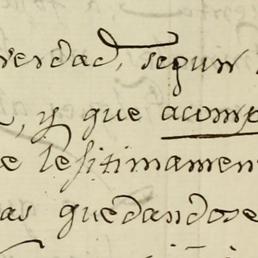 verdad, segun
, y que acomp
e lexitimamen
as quedandose